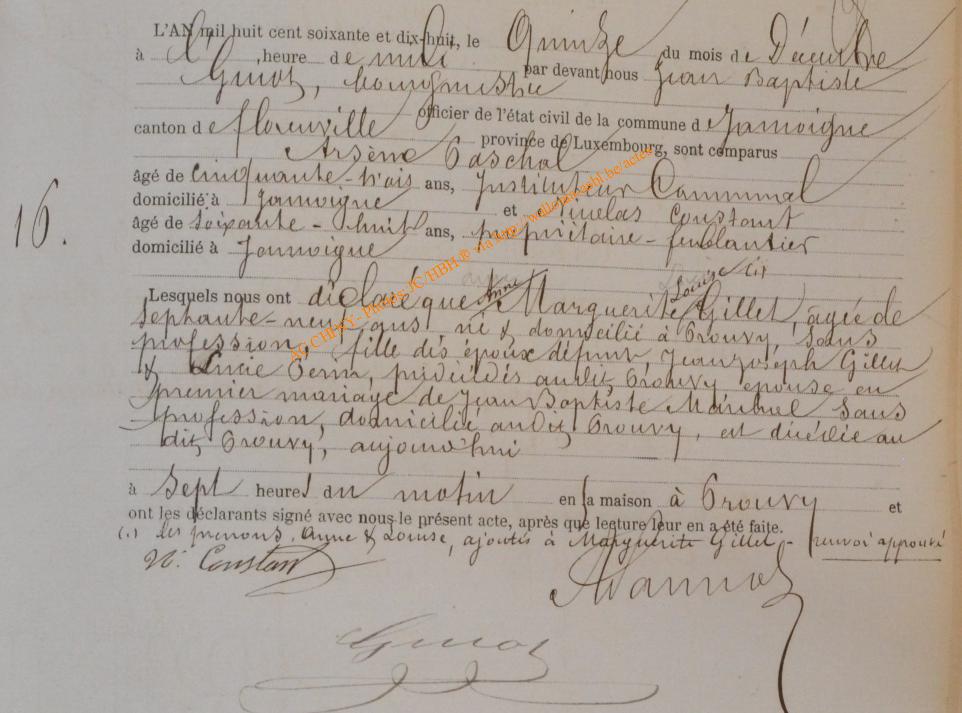 L'AN mil huit cent soixante et dix-huit, le Quinze du mois de Décembre
à heure de midi par devant nous Jean Baptiste
Guiot, bourgmestre
officier de l'état civil de la commune de Jamoigne
canton de florenville province de Luxembourg, sont comparus
Arsène Paschal
âgé de cinquante-trois ans, Instituteur Communal
domicilié à Jamoigne et Nicolas Constant
âgé de soixante-huit ans, propriétaire-ferblantier
domicilié à Jamoigne
Lesquels nous ont déclaré que Anne Marguerite Louise Gillet, agée de
septante-neuf ans né & domicilié à Prouvy, sans
profession, fille des époux défunt Jean Joseph Gillet
& Lucie prédécédés audit Prouvy épouse en
premier mariage de Jean Baptiste sans
profession, domicilié audit Prouvy, est décédée au
dit Prouvy, aujourd'hui
à Sept heures du matin en la maison à Prouvy et
ont les déclarants signé avec nous le présent acte, après que lecture leur en a été faite.
(1) les prénoms, Anne & Louise, ajoutés à Marguerite Gillet - renvoi approuvé
N. Constant
Guiot
16.
AC CHINY - Photos JC/HBH ® via http://wallonia.ghl.be/actes